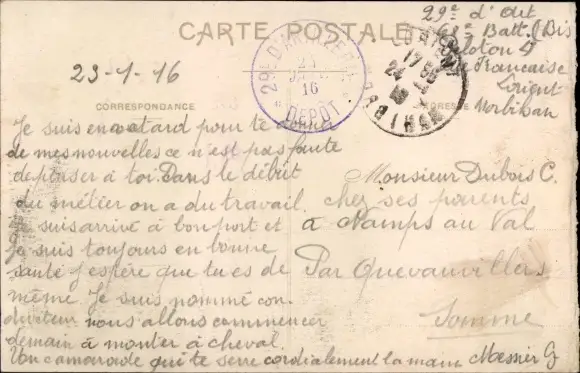 CARTE POSTALE
29e d'Art
68e Batt. (Bis
Peloton D
Francaise
Lorient
Morbihan
23-1-16
29e D'ARTILLERIE
23
JANV
16
* DEPÔT *
LORIENT
24
16
MORBIHAN
CORRESPONDANCE
ADRESSE
Je suis en retard pour te donner
de mes nouvelles ce n'est pas faute
de penser à toi. Dans le début
du métier on a du travail
Je suis arrivé à bon port et
je suis toujours en bonne
santé j'espère que tu es de
même. Je suis nommé con
ducteur nous allons commencer
demain à monter à cheval
Un camarade qui te serre cordialement la main Messier G
Monsieur Dubois C.
chez ses parents
à Namps au Val
Par Quevauvillers
Somme